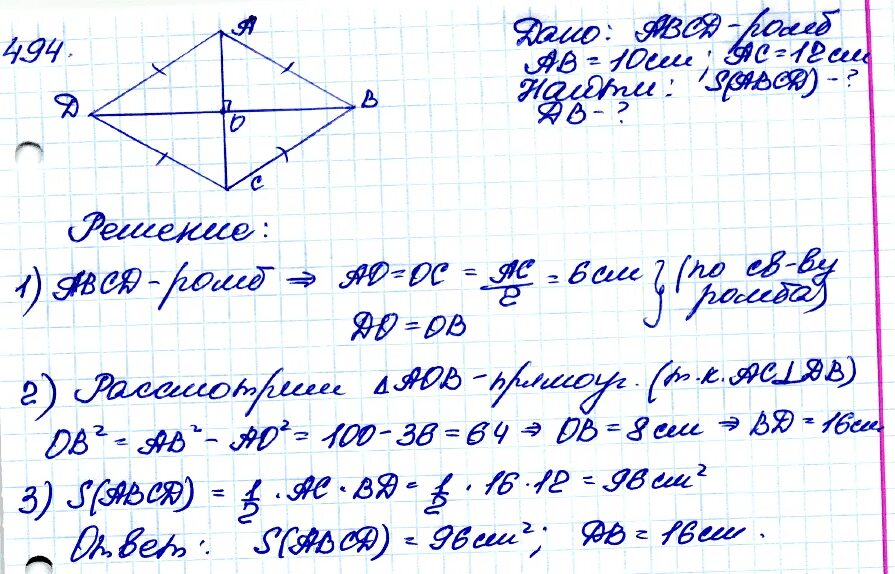 494.
A
D
B
O
C
Дано: ABCD - ромб
AB = 10 см; AC = 12 см
Найти: S(ABCD) - ?
DB - ?
Решение:
1) ABCD - ромб ⇒ AO = OC = AC/2 = 6 см } (по св-ву ромба)
DO = OB
2) Рассмотрим △AOB - прямоуг. (т.к. AC⊥DB)
OB² = AB² - AO² = 100 - 36 = 64 ⇒ OB = 8 см ⇒ BD = 16 см
3) S(ABCD) = 1/2 · AC · BD = 1/2 · 16 · 12 = 96 см²
Ответ: S(ABCD) = 96 см²; DB = 16 см.